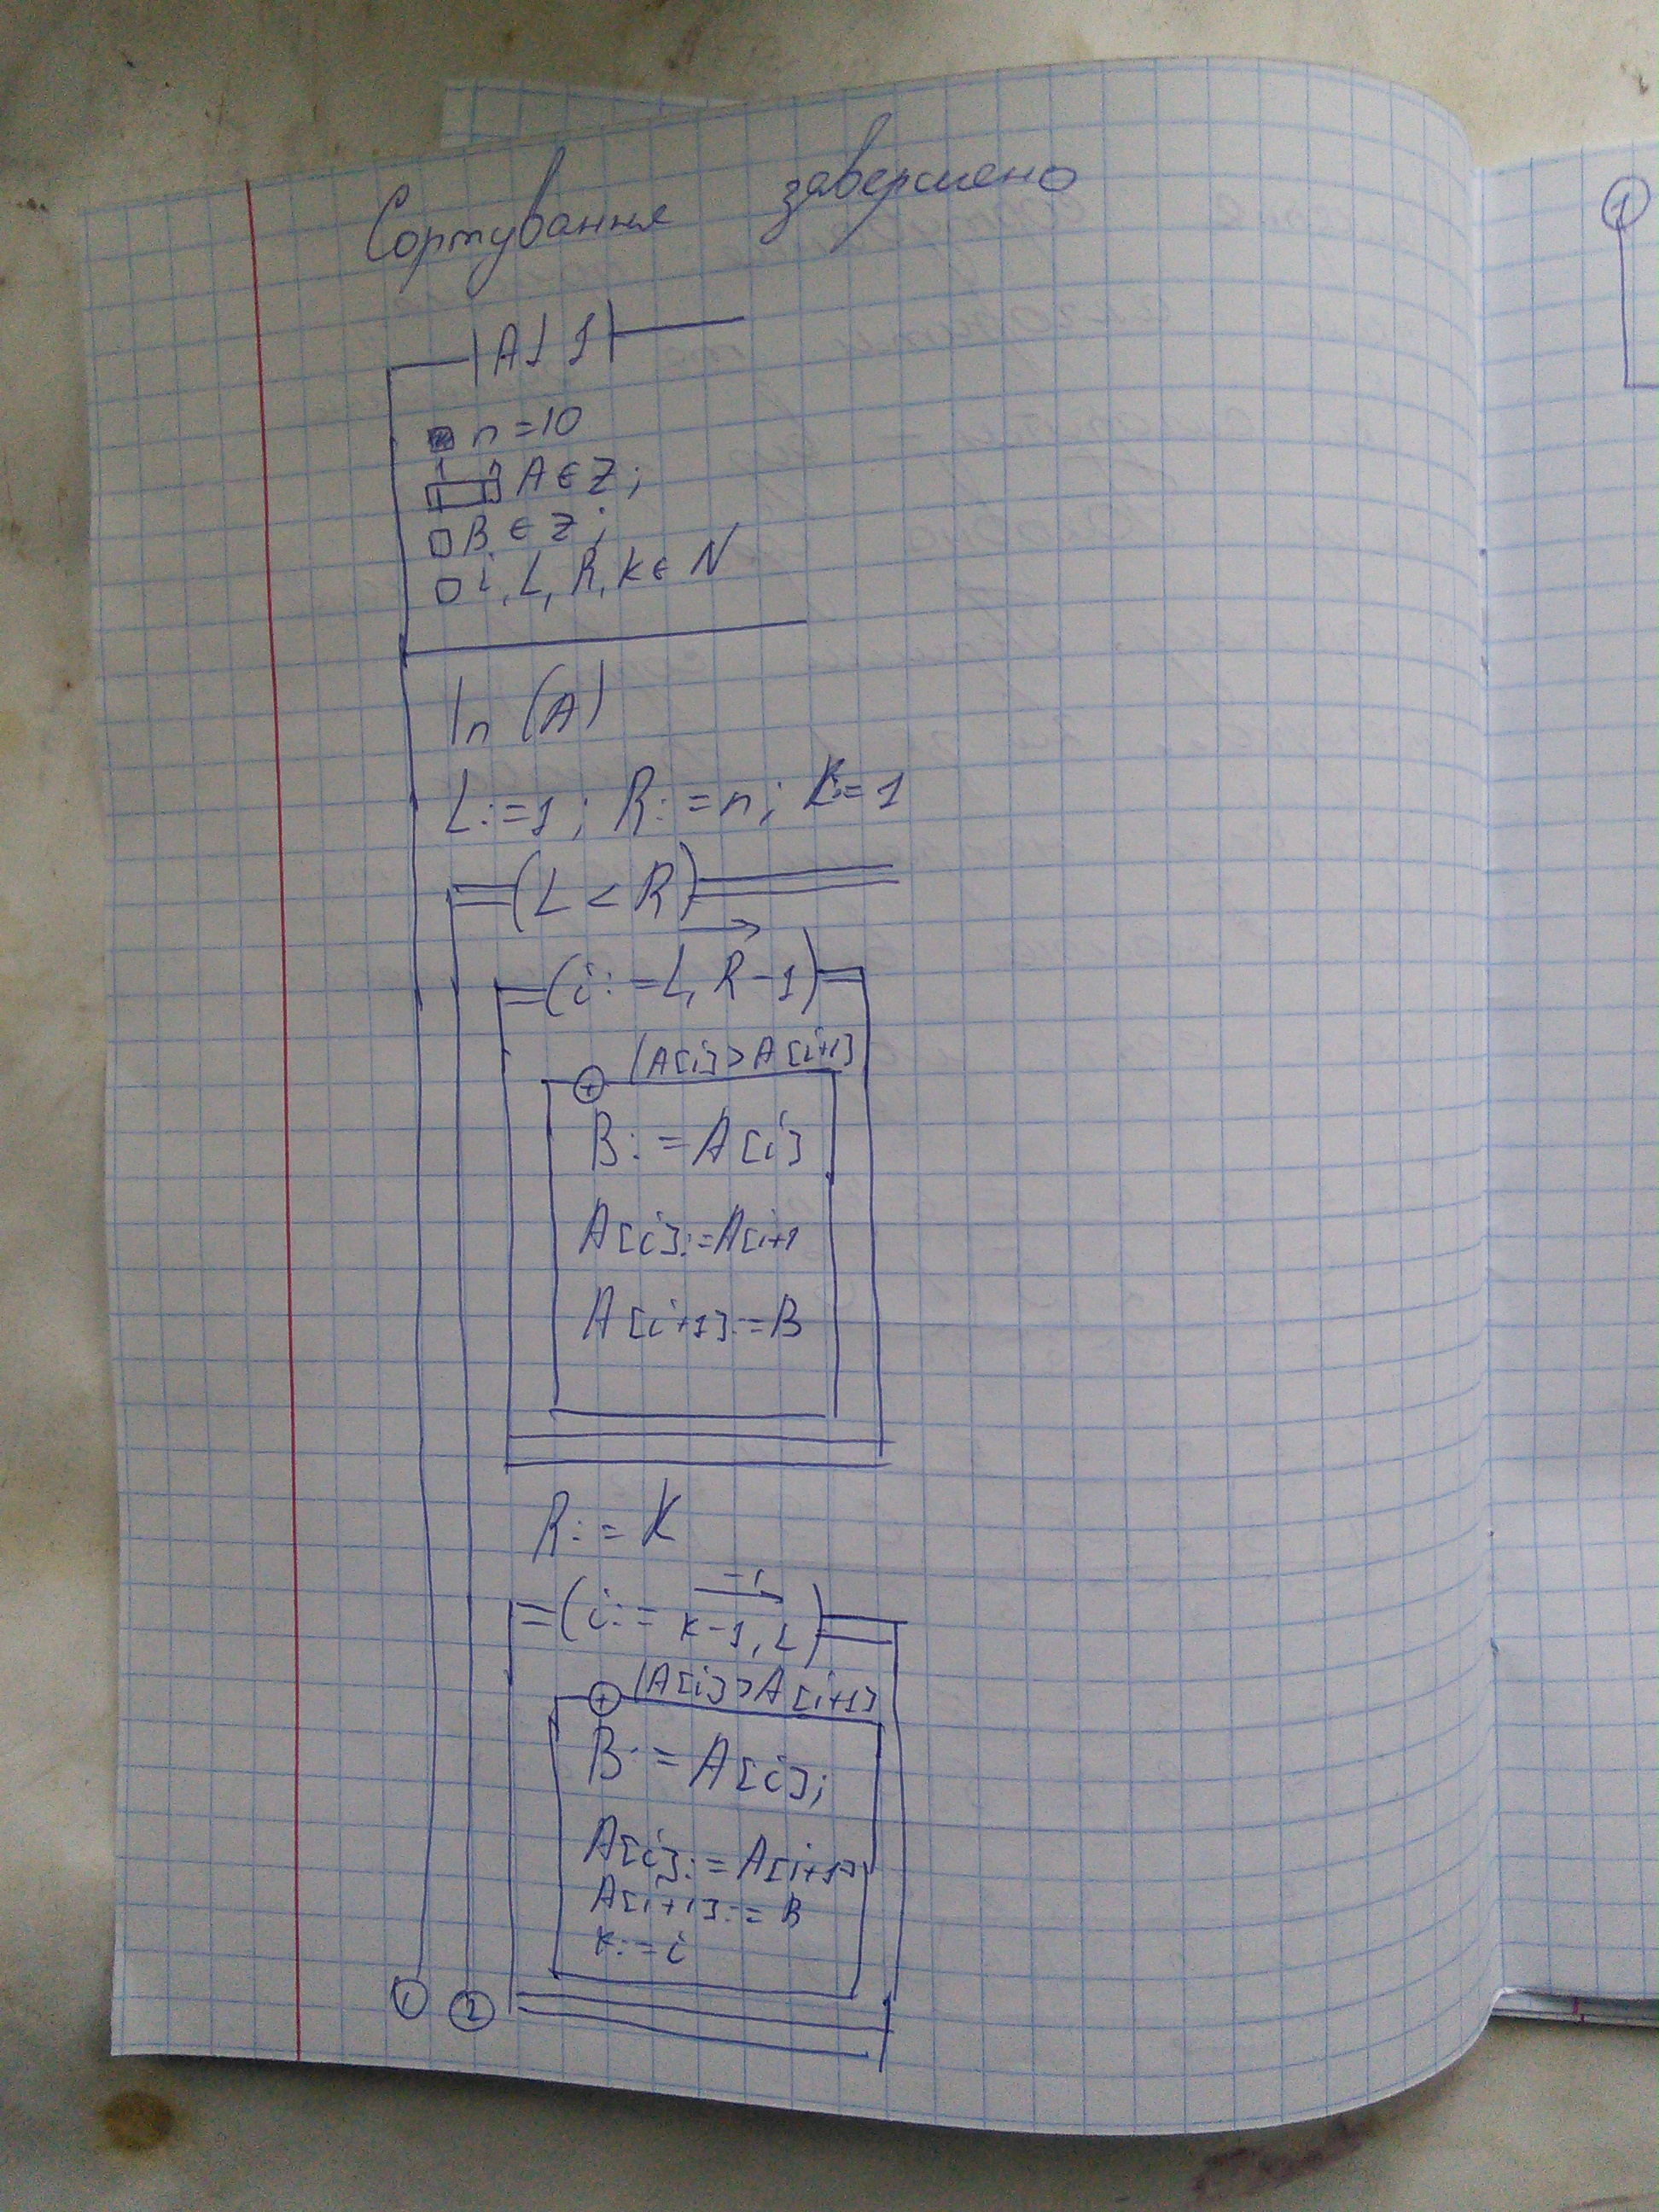 Сортування завершено
A11
n=10
1 n A∈Z;
B∈Z;
i, L, R, K∈N
In (A)
L:=1; R:=n; K:=1
(L<R)
(i:=L, R-1)
(A[i]>A[i+1]
+
B:=A[i]
A[i]:=A[i+1
A[i+1]:=B
R:=K
-1
(i:=K-1, L)
(A[i]>A[i+1]
+
B:=A[i];
A[i]:=A[i+1]
A[i+1]:=B
K:=i
1 2
1